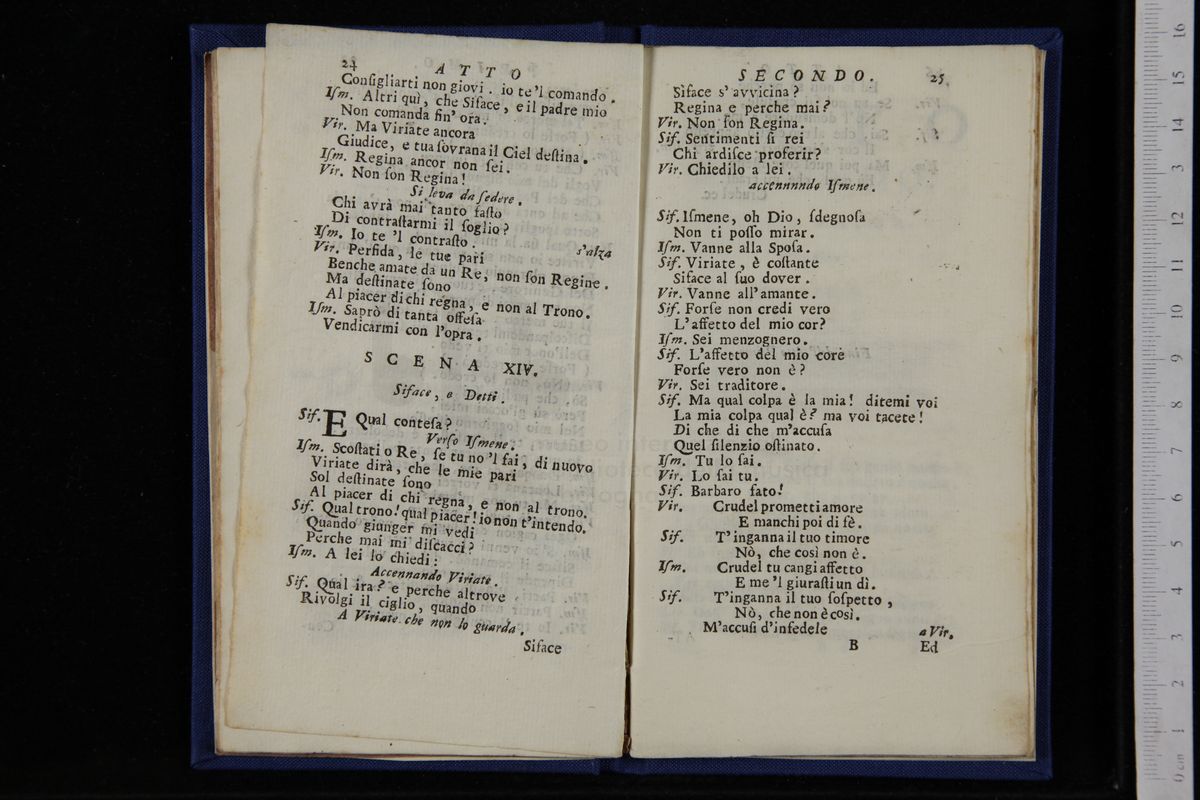 24
ATTO
Conſigliarti non giovi. io te'l comando.
Iſm. Altri quì, che Siface, e il padre mio
Non comanda fin' ora.
Vir. Ma Viriate ancora
Giudice, e tua ſovrana il Ciel deſtina.
Iſm. Regina ancor non ſei.
Vir. Non ſon Regina!
Si leva da ſedere.
Chi avrà mai tanto faſto
Di contraſtarmi il ſoglio?
Iſm. Io te 'l contraſto. s'alza
Vir. Perfida, le tue pari
Benche amate da un Re, non ſon Regine.
Ma deſtinate ſono
Al piacer di chi regna, e non al Trono.
Iſm. Saprò di tanta offeſa
Vendicarmi con l'opra.
SCENA XIV.
Siface, e Detti.
Sif. E Qual conteſa?
Verſo Iſmene.
Iſm. Scoſtati o Re, ſe tu no 'l fai, di nuovo
Viriate dirà, che le mie pari
Sol deſtinate ſono
Al piacer di chi regna, e non al trono.
Sif. Qual trono! qual piacer! io non t'intendo.
Quando giunger mi vedi
Perche mai mi diſcacci?
Iſm. A lei lo chiedi:
Accennando Viriate.
Sif. Qual ira? e perche altrove
Rivolgi il ciglio, quando
A Viriate che non lo guarda.
Siface
SECONDO. 25
Siface s' avvicina?
Regina e perche mai?
Vir. Non ſon Regina.
Sif. Sentimenti ſi rei
Chi ardiſce proferir?
Vir. Chiedilo a lei.
accennnndo Iſmene.
Sif. Iſmene, oh Dio, ſdegnoſa
Non ti poſſo mirar.
Iſm. Vanne alla Spoſa.
Sif. Viriate, è coſtante
Siface al ſuo dover.
Vir. Vanne all'amante.
Sif. Forſe non credi vero
L'affetto del mio cor?
Iſm. Sei menzognero.
Sif. L'affetto del mio core
Forſe vero non è?
Vir. Sei traditore.
Sif. Ma qual colpa è la mia! ditemi voi
La mia colpa qual è? ma voi tacete!
Di che di che m'accuſa
Quel ſilenzio oſtinato.
Iſm. Tu lo ſai.
Vir. Lo ſai tu.
Sif. Barbaro fato!
Vir. Crudel prometti amore
E manchi poi di fè.
Sif. T'inganna il tuo timore
Nò, che così non è.
Iſm. Crudel tu cangi affetto
E me 'l giuraſti un dì.
Sif. T'inganna il tuo ſoſpetto,
Nò, che non è così.
M'accuſi d'infedele a Vir.
B Ed